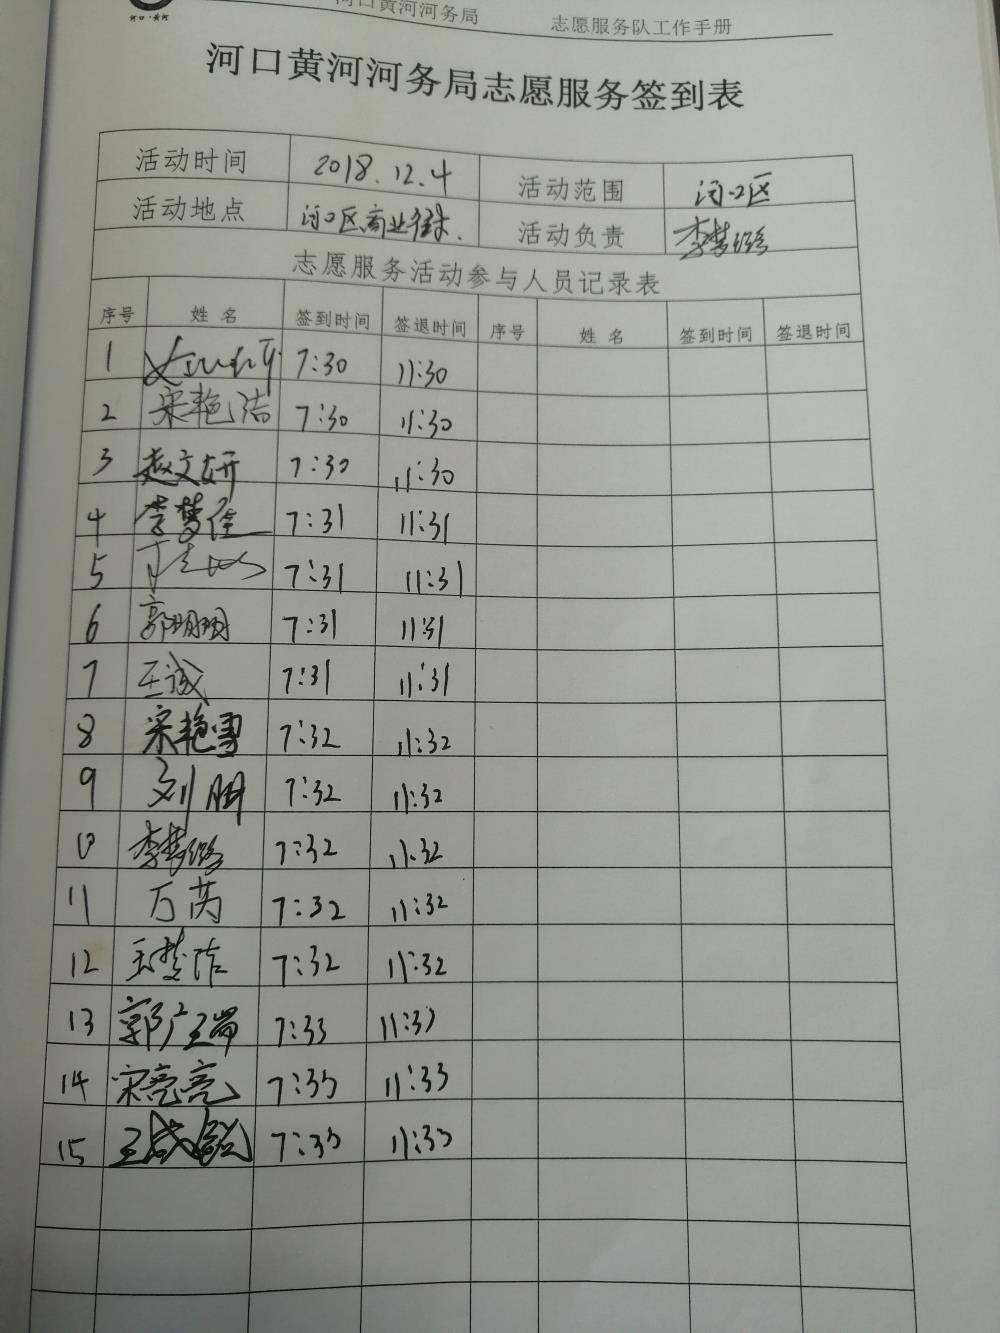 河口·黄河
河口黄河河务局 志愿服务队工作手册
河口黄河河务局志愿服务签到表
活动时间 2018.12.4 活动范围 河口区
活动地点 河口区商业街. 活动负责 李梦璐
志愿服务活动参与人员记录表
序号 姓名 签到时间 签退时间 序号 姓名 签到时间 签退时间
1 7:30 11:30
2 宋艳洁 7:30 11:30
3 赵文妍 7:30 11:30
4 李梦佳 7:31 11:31
5 7:31 11:31
6 郭明明 7:31 11:31
7 王诚 7:31 11:31
8 宋艳雪 7:32 11:32
9 刘朋 7:32 11:32
10 李梦璐 7:32 11:32
11 万芮 7:32 11:32
12 王梦洁 7:32 11:32
13 郭广瑞 7:33 11:33
14 宋亮亮 7:33 11:33
15 7:33 11:33